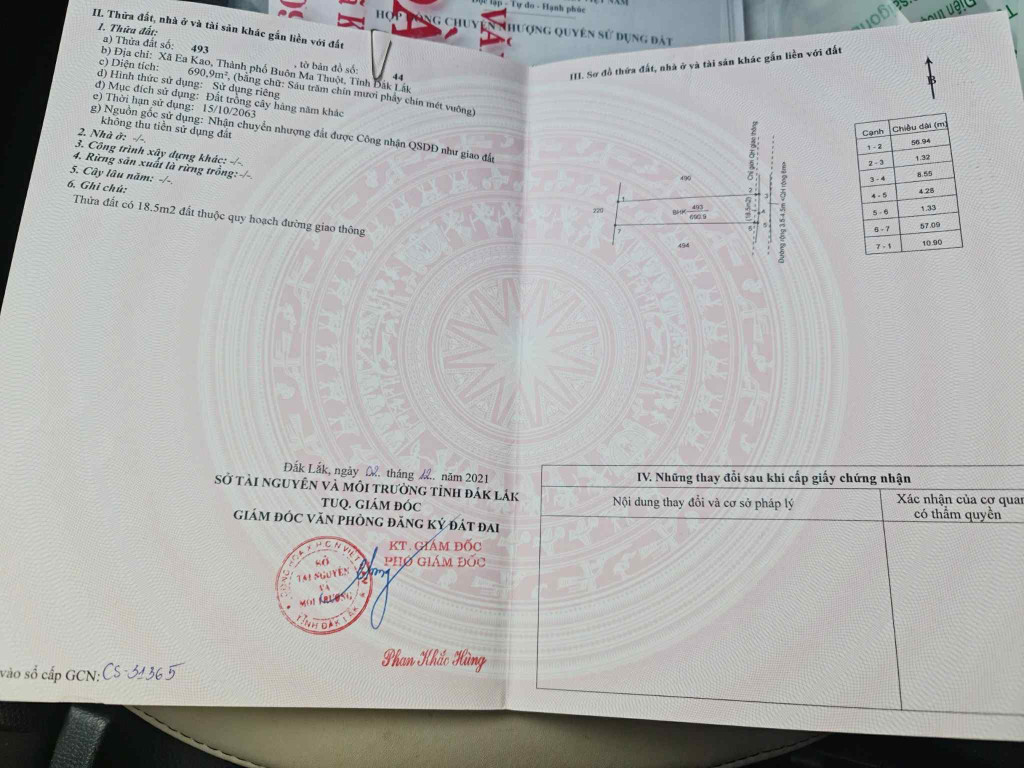 Độc lập - Tự do - Hạnh phúc
HỢP ĐỒNG CHUYỂN NHƯỢNG QUYỀN SỬ DỤNG ĐẤT
II. Thửa đất, nhà ở và tài sản khác gắn liền với đất
1. Thửa đất:
a) Thửa đất số: 493 , tờ bản đồ số: 44
b) Địa chỉ: Xã Ea Kao, Thành phố Buôn Ma Thuột, Tỉnh Đắk Lắk
c) Diện tích: 690,9m², (bằng chữ: Sáu trăm chín mươi phẩy chín mét vuông)
d) Hình thức sử dụng: Sử dụng riêng
đ) Mục đích sử dụng: Đất trồng cây hàng năm khác
e) Thời hạn sử dụng: 15/10/2063
g) Nguồn gốc sử dụng: Nhận chuyển nhượng đất được Công nhận QSDĐ như giao đất
không thu tiền sử dụng đất
2. Nhà ở: -/-.
3. Công trình xây dựng khác: -/-.
4. Rừng sản xuất là rừng trồng: -/-.
5. Cây lâu năm: -/-.
6. Ghi chú:
Thửa đất có 18.5m2 đất thuộc quy hoạch đường giao thông
Đắk Lắk, ngày 02. tháng 12. năm 2021
SỞ TÀI NGUYÊN VÀ MÔI TRƯỜNG TỈNH ĐẮK LẮK
TUQ. GIÁM ĐỐC
GIÁM ĐỐC VĂN PHÒNG ĐĂNG KÝ ĐẤT ĐAI
KT. GIÁM ĐỐC
PHÓ GIÁM ĐỐC
SỞ
TÀI NGUYÊN
VÀ
MÔI TRƯỜNG
TỈNH ĐẮK LẮK
Phan Khắc Hùng
vào sổ cấp GCN: CS-31365
III. Sơ đồ thửa đất, nhà ở và tài sản khác gắn liền với đất
B
496
220
1
2
3
4
5
6
7
BHK 493
690.9
(18.5m2)
494
Chỉ giới QH giao thông
Đường rộng 3.5-4.5m <QH rộng 6m>
Cạnh Chiều dài (m)
1 - 2 56.94
2 - 3 1.32
3 - 4 6.55
4 - 5 4.28
5 - 6 1.33
6 - 7 57.09
7 - 1 10.90
IV. Những thay đổi sau khi cấp giấy chứng nhận
Nội dung thay đổi và cơ sở pháp lý
Xác nhận của cơ quan
có thẩm quyền